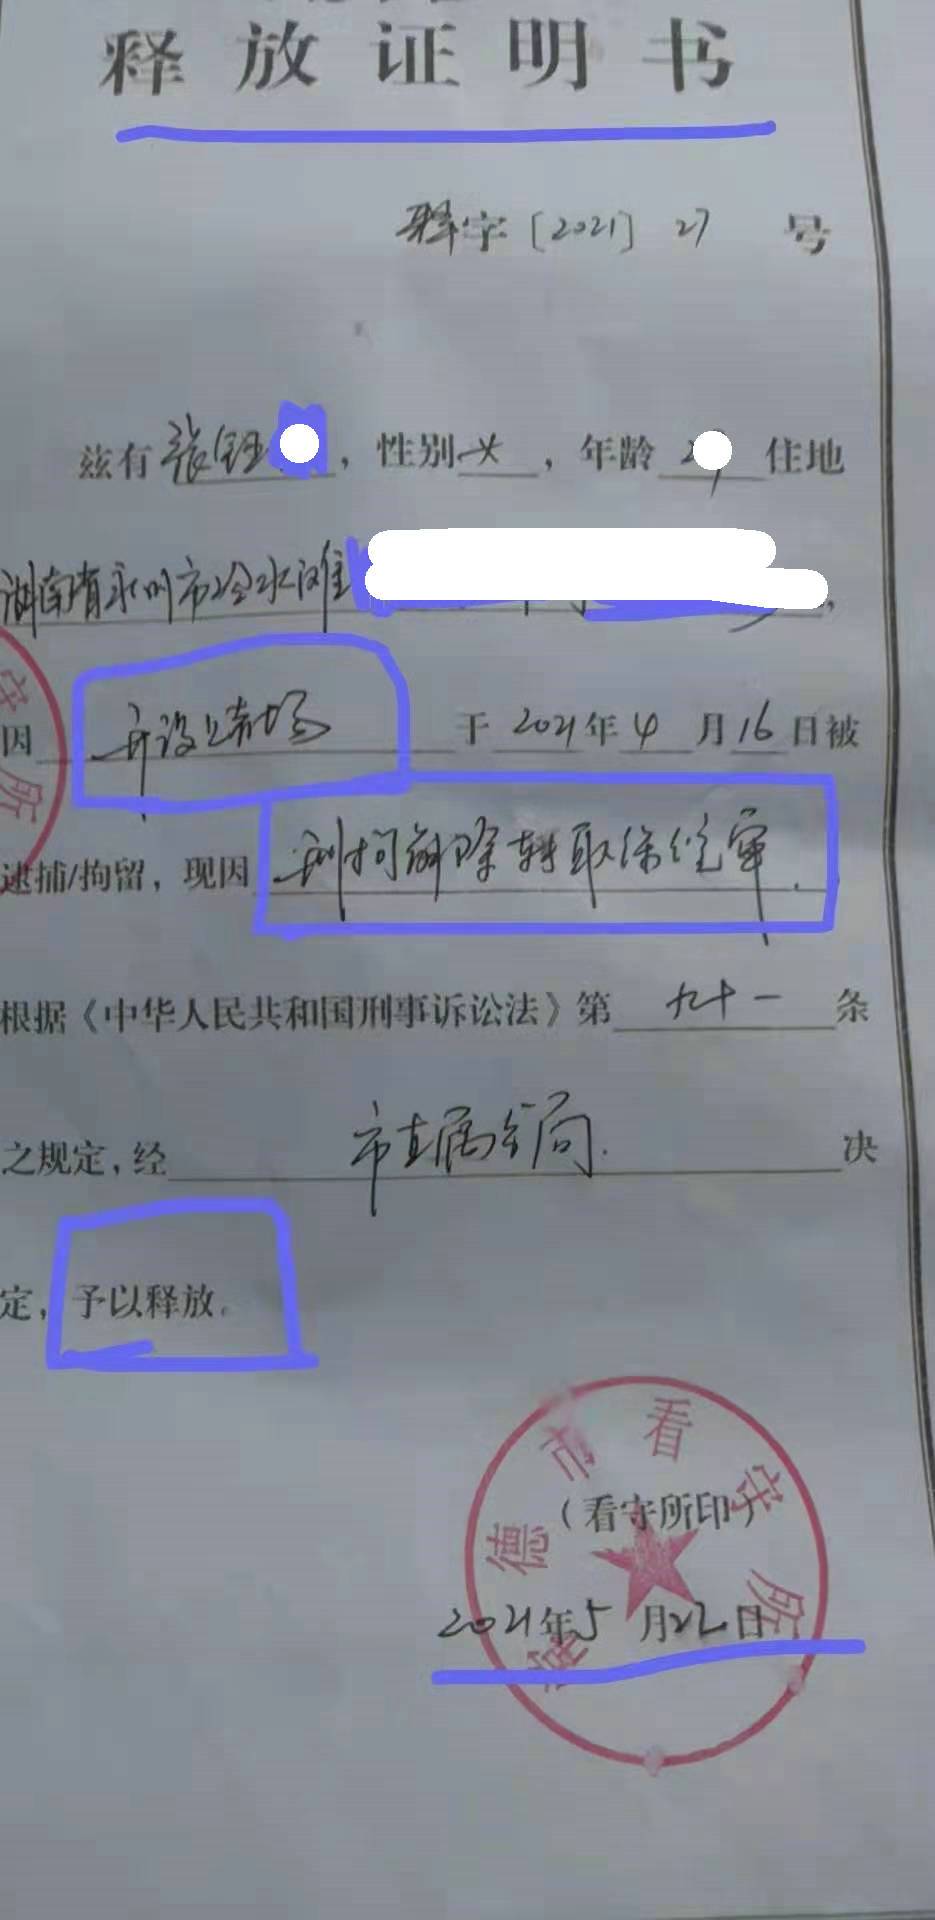 释放证明书
释字〔2021〕27号
兹有张钰，性别女，年龄2住地
湖南省永州市冷水滩，
因开设赌场于2021年4月16日被
逮捕/拘留，现因刑拘解除转取保候审.
根据《中华人民共和国刑事诉讼法》第九十一条
之规定，经市直属分局.决
定，予以释放。
常德市看守所
（看守所印）
2021年5月22日
守所